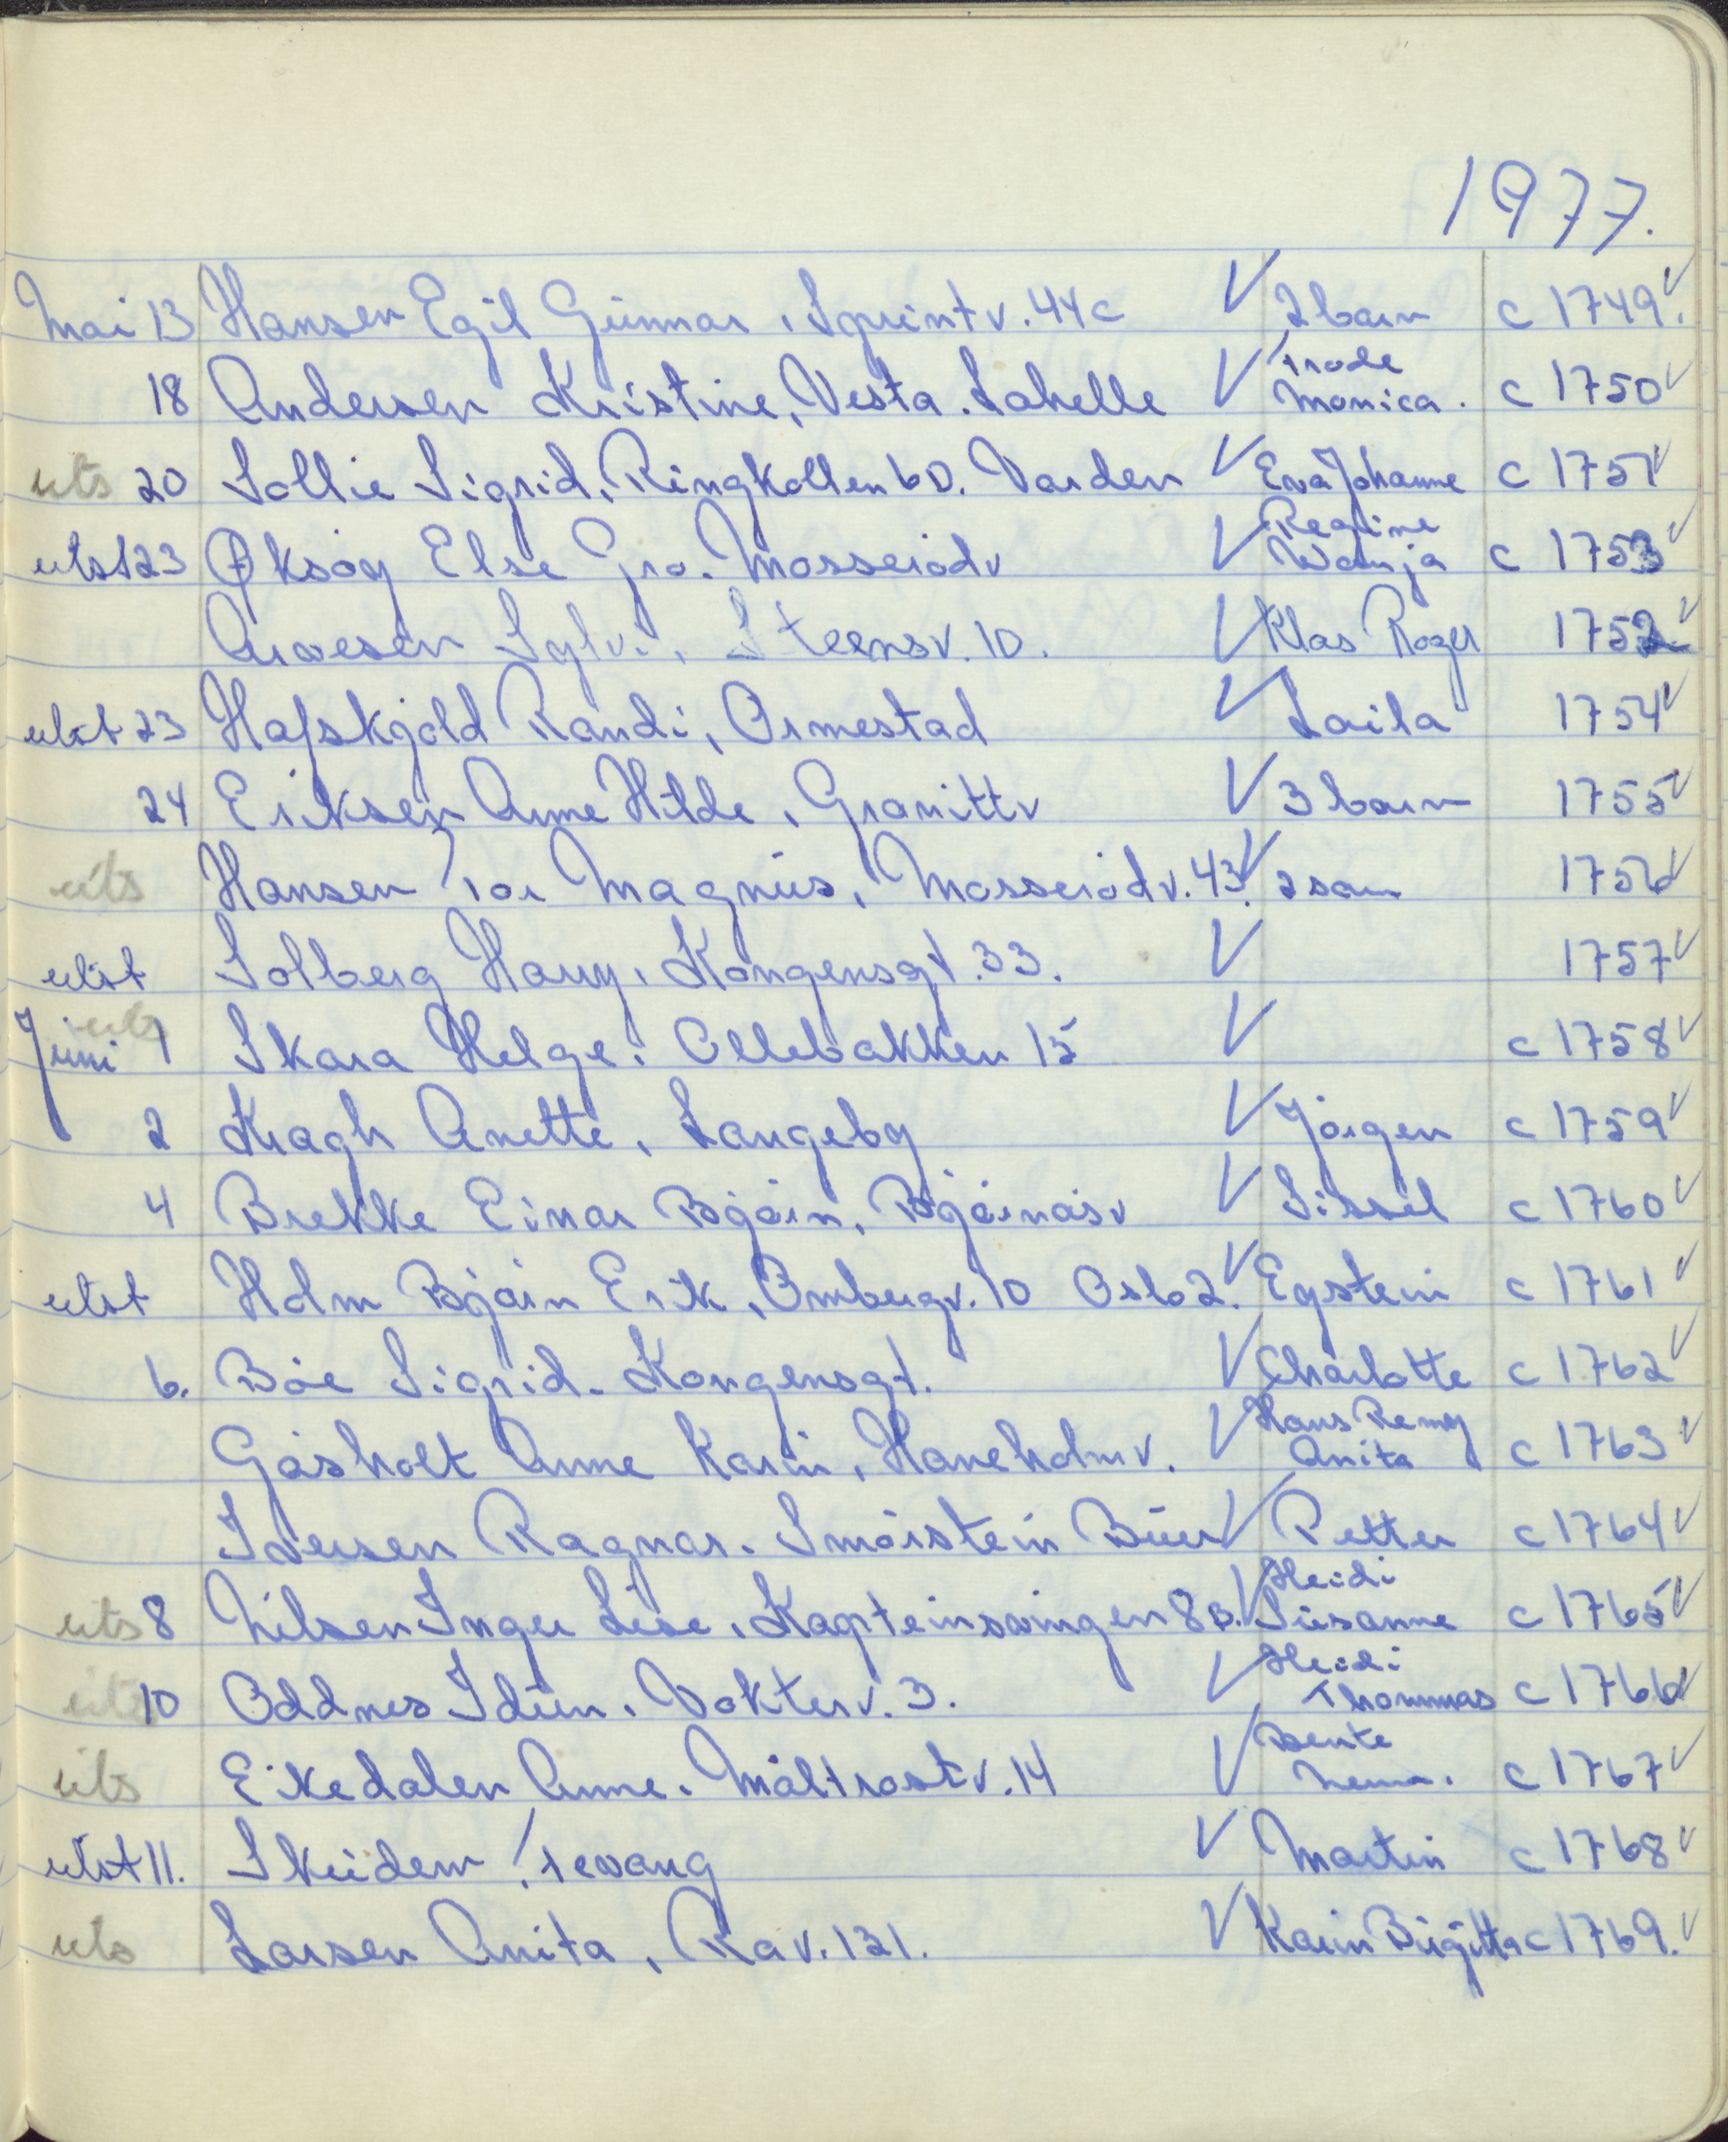 1977.
Mai 13 Hansen Egil Gunnar, Sprintv. 44c V 2 barn c 1749. v
18 Andersen Kristine, Vesta. Lahelle V Trode Monica. c 1750 v
uts 20 Sollie Sigrid, Ringkollen 6D. Varden V Eva Johanne c 1751 v
utst 23 Øksøy Else Gro. Mosserödv V Regine Wanja c 1753 v
Arvesen Sylvi, Steensv. 10. V Klas Roger 1752 v
utst 23 Hafskjold Randi, Ormestad V Laila 1754 v
24 Eriksen Anne Hilde, Granittv V 3 barn 1755 v
uts Hansen Tor Magnus, Mosserödv. 43. V 1756 v
utst Solberg Harry, Kongensgt. 33. V 1757 v
Juni uts 1 Skara Helge. Ollebakken 15 V c 1758 v
2 Kragh Anette, Langeby V Jörgen c 1759 v
4 Brekke Einar Björn, Björnåsv V Sissel c 1760 v
utst Holm Björn Erik, Ombergv. 10 Oslo 2. V Eystein c 1761 v
6. Böe Sigrid. Kongensgt. V Charlotte c 1762 v
Gåsholt Anne Karin, Haneholmv. V Hans Remy Anita c 1763 v
Iversen Ragnar. Smörstein Buer V Petter c 1764 v
uts 8 Nilsen Inger Lise, Kapteinsvingen 8 D. V Heidi Susanne c 1765 v
uts 10 Oddnes Idun. Vokterv. 3. V Heidi Thommas c 1766 v
uts Eikedalen Anne. Måltrostv. 14 V Bente c 1767 v
utst 11. V Martin c 1768 v
uts Larsen Anita, Rav. 131. V Karin Birgitta c 1769. v